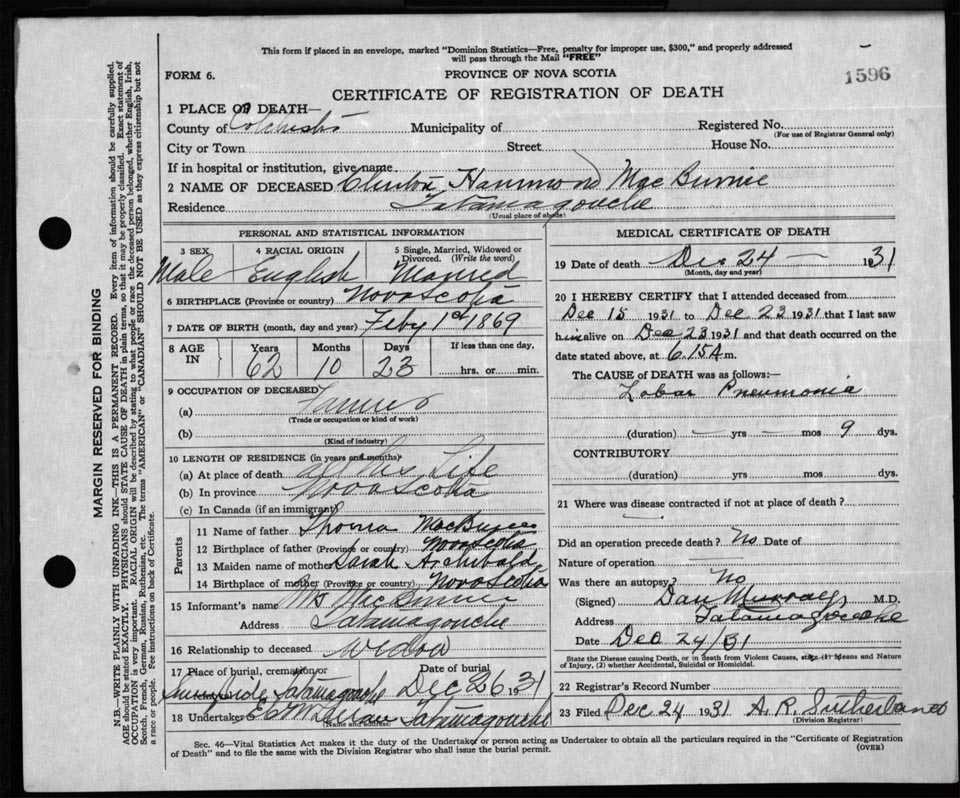 This form if placed in an envelope, marked "Dominion Statistics—Free, penalty for improper use, $300," and properly addressed
will pass through the Mail "FREE"
FORM 6.
PROVINCE OF NOVA SCOTIA
1596
CERTIFICATE OF REGISTRATION OF DEATH
1 PLACE OF DEATH—
County of Colchester Municipality of Registered No.
(For use of Registrar General only)
City or Town Street House No.
If in hospital or institution, give name
2 NAME OF DECEASED Clinton Hammond MacBurnie
Residence Tatamagouche
(Usual place of abode)
PERSONAL AND STATISTICAL INFORMATION
3 SEX 4 RACIAL ORIGIN 5 Single, Married, Widowed or Divorced. (Write the word)
Male English Married
6 BIRTHPLACE (Province or country) Nova Scotia
7 DATE OF BIRTH (month, day and year) Feby 1st 1869
8 AGE IN Years Months Days If less than one day,
62 10 23 hrs. or min.
9 OCCUPATION OF DECEASED
(a) Farmer
(Trade or occupation or kind of work)
(b)
(Kind of industry)
10 LENGTH OF RESIDENCE (in years and months)
(a) At place of death all his Life
(b) In province Nova Scotia
(c) In Canada (if an immigrant)
Parents
11 Name of father Thomas MacBurnie
12 Birthplace of father (Province or country) Nova Scotia
13 Maiden name of mother Sarah Archibald
14 Birthplace of mother (Province or country) Nova Scotia
15 Informant's name MacBurnie
Address Tatamagouche
16 Relationship to deceased Widow
17 Place of burial, cremation or Date of burial
Tatamagouche Dec 26 1931
18 Undertaker Tatamagouche
(Name and address)
MEDICAL CERTIFICATE OF DEATH
19 Date of death Dec 24 — 1931
(Month, day and year)
20 I HEREBY CERTIFY that I attended deceased from
Dec 15 1931 to Dec 23 1931 that I last saw
him alive on Dec 23 1931 and that death occurred on
date stated above, at 6.15 A m.
The CAUSE OF DEATH was as follows:—
Lobar Pneumonia
(duration) — yrs — mos 9 dys.
CONTRIBUTORY
(duration) yrs mos dys.
21 Where was disease contracted if not at place of death?
Did an operation precede death? No Date of
Nature of operation
Was there an autopsy? No
(Signed) Dan Murray M.D.
Address Tatamagouche
Date Dec 24/31
State the Disease causing Death, or in death from Violent Causes, state (1) Means and Nature
of Injury, (2) whether Accidental, Suicidal or Homicidal.
22 Registrar's Record Number
23 Filed Dec 24 1931 A. R. Sutherland
(Division Registrar)
Sec. 46—Vital Statistics Act makes it the duty of the Undertaker or person acting as Undertaker to obtain all the particulars required in the "Certificate of Registration
of Death" and to file the same with the Division Registrar who shall issue the burial permit.
(OVER)
MARGIN RESERVED FOR BINDING
N.B.—WRITE PLAINLY WITH UNFADING INK—THIS IS A PERMANENT RECORD. Every item of information should be carefully supplied.
AGE should be stated EXACTLY. PHYSICIANS should STATE CAUSE OF DEATH in plain terms, so that it may be properly classified. Exact statement of
OCCUPATION is very important. RACIAL ORIGIN will be described by stating to what people or race the deceased person belonged, whether English, Irish,
Scotch, French, German, Russian, Ruthenian, etc. The terms "AMERICAN" or "CANADIAN" SHOULD NOT BE USED as they express citizenship but not
a race or people. See instructions on back of Certificate.